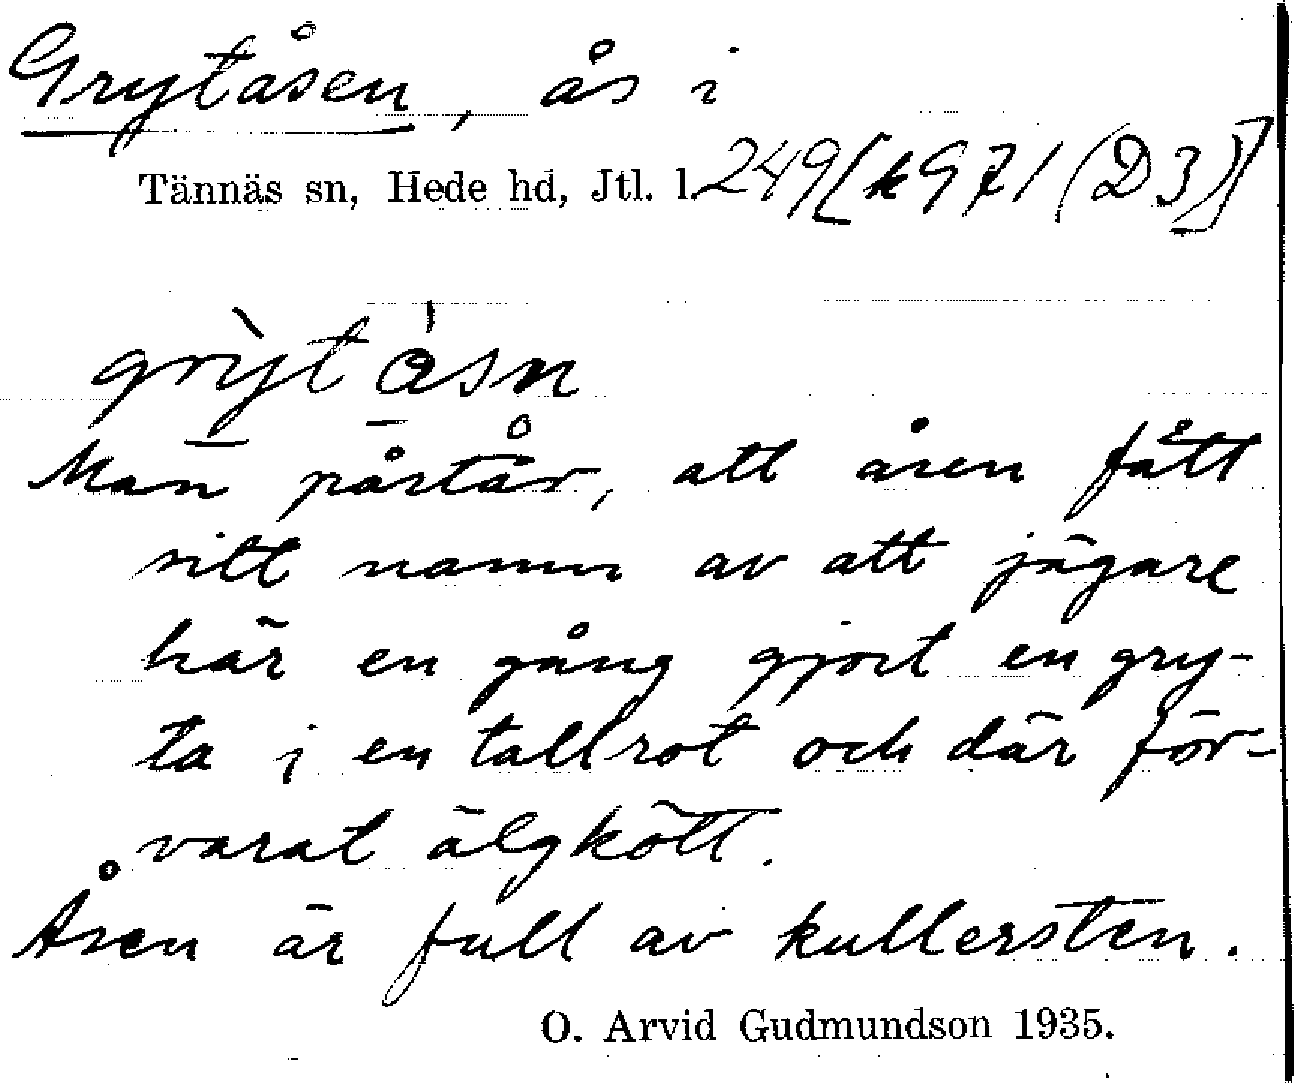 Grytåsen, ås i
Tännäs sn, Hede hd, Jtl. l. 249 [k971 (D3)]
grỳt åsn
Man påstår, att åsen fått
sitt namn av att jägare
här en gång gjort en gry-
ta i en tallrot och där för-
varat älgkött.
Åsen är full av kullersten.
O. Arvid Gudmundson 1935.